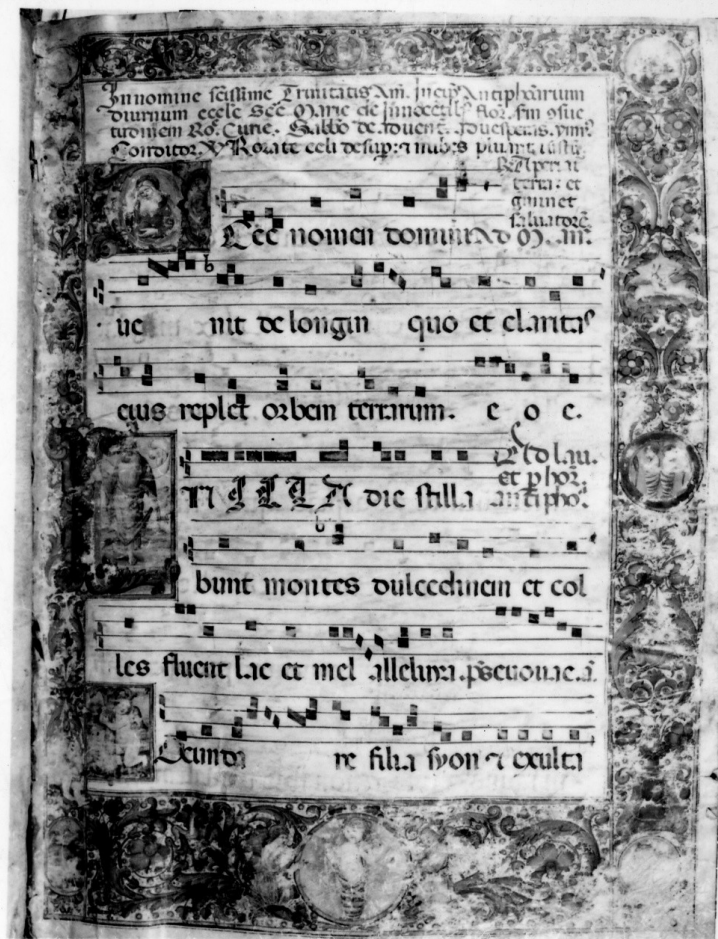 In nomine scissime Trinitatis Am. Incip Antiphanarium
diurnum eccle See Marie de Innocetib flor. sm osue
tudinem Ro. Curie. Sabbo de aduent. ad uesperas. ymn.
Conditor. V Rorate celi desup: 7 nubes pluant iustu
Aperiat
terra: et
gminet
saluatore
Ecce nomen domini Ad M. an.
ue nit de longin quo et claritas
eius replet orbem terrarum. e o e.
Ad lau.
et p hor.
antipho.
N ILLA die stilla
bunt montes dulcedinem et col
les fluent lac et mel alleluya. ps euouae. a
Ocunda re filia syon 7 exulta